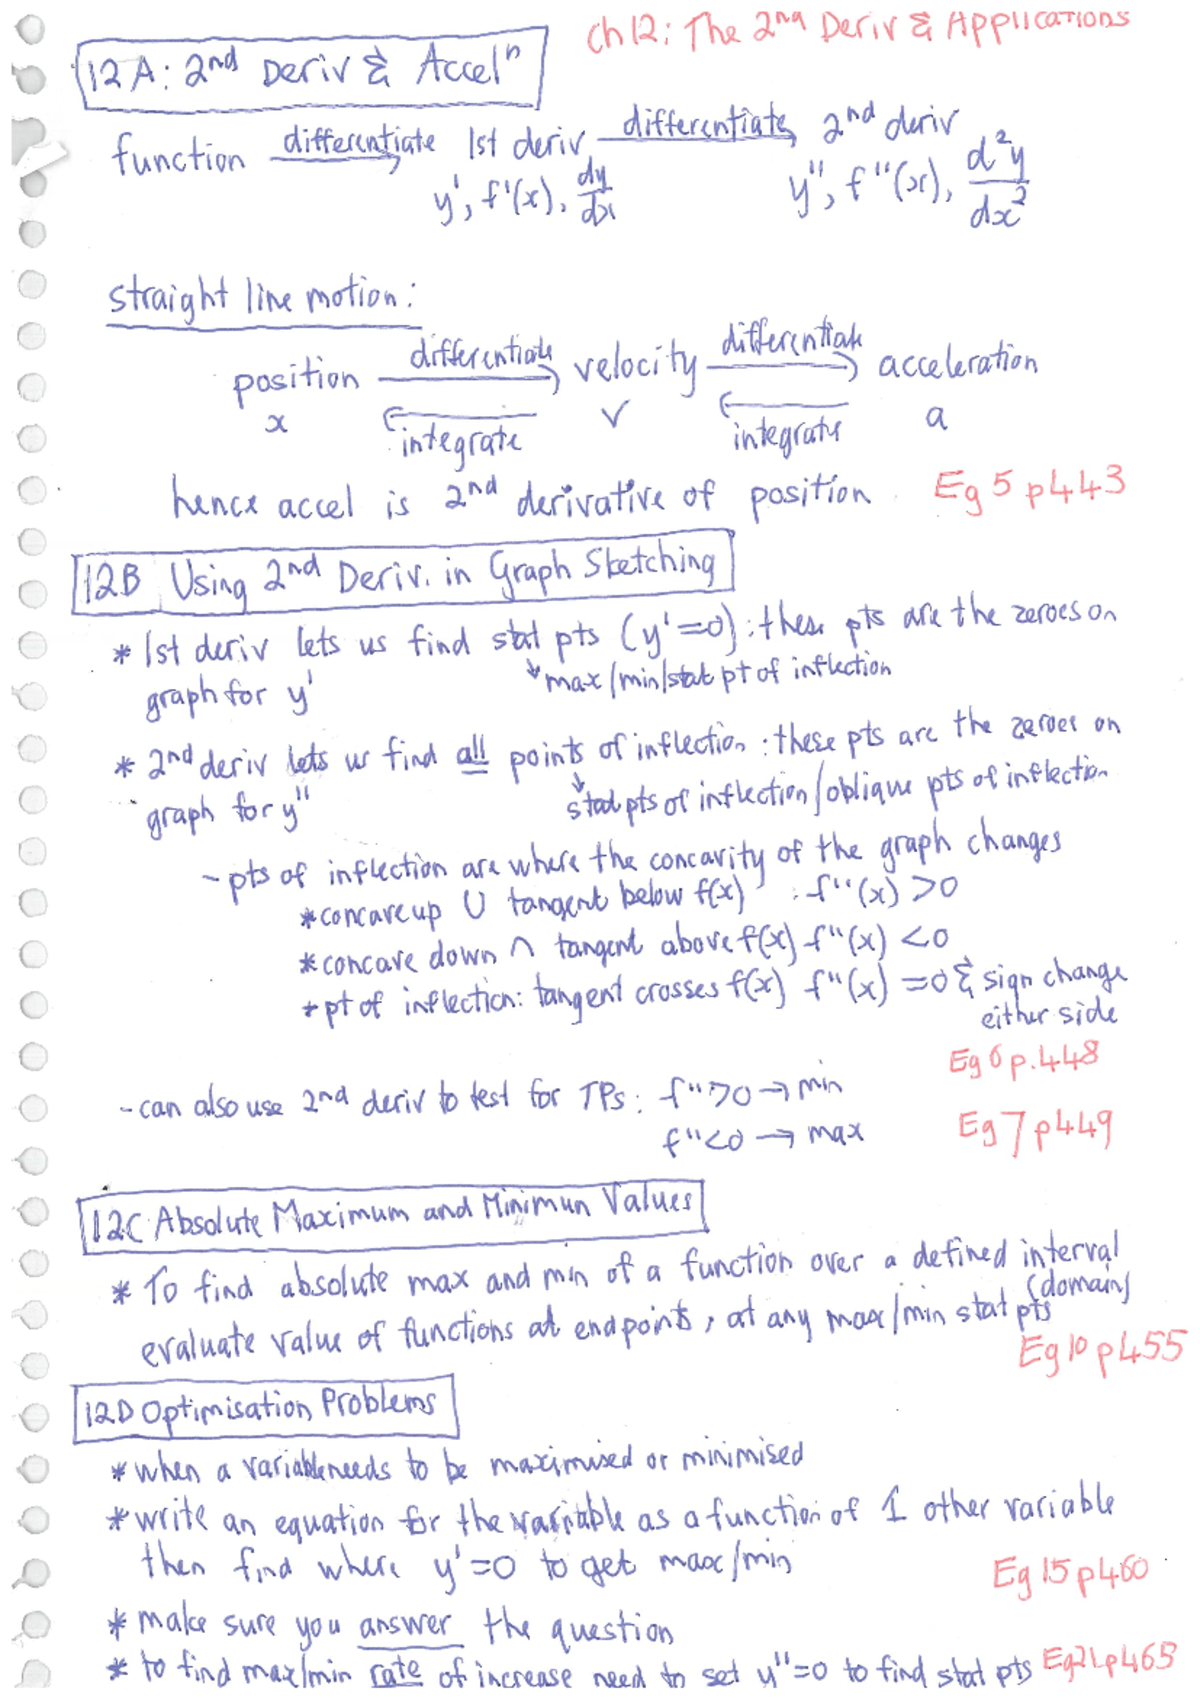 Ch12: The 2nd Deriv & Applications
12A: 2nd Deriv & Accel^n
function differentiate 1st deriv differentiate 2nd deriv
y', f'(x), dy/dx y'', f''(x), d²y/dx²
straight line motion:
position differentiate velocity differentiate acceleration
x integrate v integrate a
hence accel is 2nd derivative of position Eg 5 p443
12B Using 2nd Deriv. in Graph Sketching
* 1st deriv lets us find stat pts (y'=0): these pts are the zeroes on
↓ max/min/stat pt of inflection
graph for y'
* 2nd deriv lets us find all points of inflection: these pts are the zeroes on
↓ stat pts of inflection/oblique pts of inflection
graph for y''
- pts of inflection are where the concavity of the graph changes
* concave up ∪ tangent below f(x) : f''(x) >0
* concave down ∩ tangent above f(x) f''(x) <0
* pt of inflection: tangent crosses f(x) f''(x) =0 & sign change
either side
Eg 6 p.448
- can also use 2nd deriv to test for TPs: f''>0 → min
f''<0 → max Eg 7 p449
12C Absolute Maximum and Minimun Values
* To find absolute max and min of a function over a defined interval
(domain)
evaluate value of functions at endpoints, at any max/min stat pts
Eg 10 p455
12D Optimisation Problems
* when a variable needs to be maximised or minimised
* write an equation for the variable as a function of 1 other variable
then find where y'=0 to get max/min
Eg 15 p460
* make sure you answer the question
* to find max/min rate of increase need to set y''=0 to find stat pts Eg21 p465